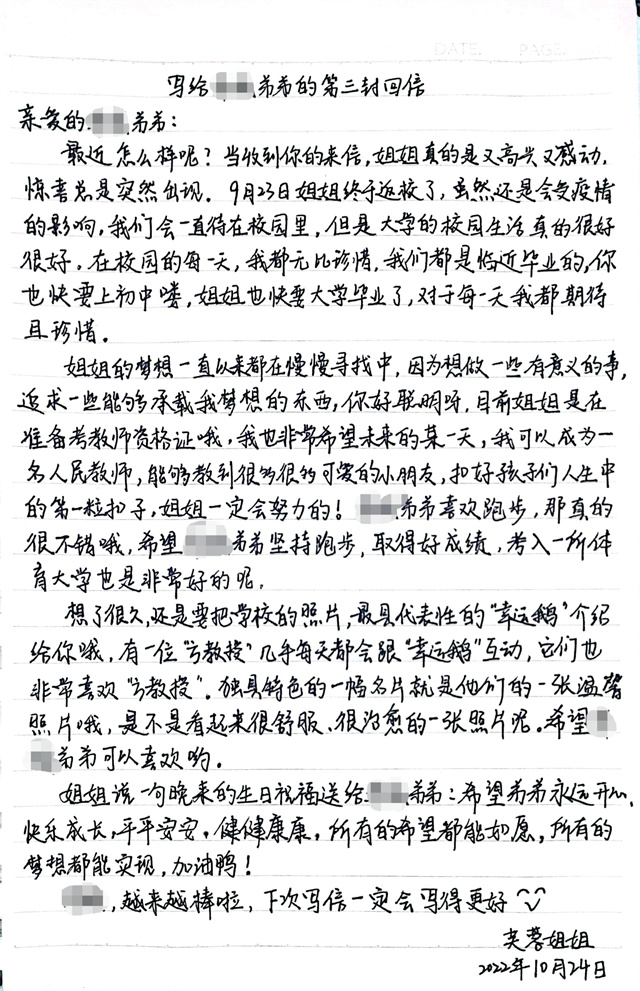 DATE. PAGE.
写给 弟弟的第三封回信
亲爱的 弟弟：
最近怎么样呢？当收到你的来信，姐姐真的是又高兴又感动，
惊喜总是突然出现。9月23日姐姐终于返校了，虽然还是会受疫情
的影响，我们会一直待在校园里，但是大学的校园生活真的很好
很好。在校园的每一天，我都无比珍惜，我们都是临近毕业的，你
也快要上初中喽，姐姐也快要大学毕业了，对于每一天我都期待
且珍惜。
姐姐的梦想一直以来都在慢慢寻找中，因为想做一些有意义的事，
追求一些能够承载我梦想的东西，你好聪明呀，目前姐姐是在
准备考教师资格证哦，我也非常希望未来的某一天，我可以成为一
名人民教师，能够教到很多很多可爱的小朋友，扣好孩子们人生中
的第一粒扣子，姐姐一定会努力的！ 弟弟喜欢跑步，那真的
很不错哦，希望 弟弟坚持跑步，取得好成绩，考入一所体
育大学也是非常好的呢。
想了很久，还是要把学校的照片，最具代表性的“幸运鹅”介绍
给你哦，有一位“ 教授”几乎每天都会跟“幸运鹅”互动，它们也
非常喜欢“ 教授”。独具特色的一幅名片就是他们的一张温馨
照片哦，是不是看起来很舒服、很治愈的一张照片呢。希望
弟弟可以喜欢哟。
姐姐说一句晚来的生日祝福送给 弟弟：希望弟弟永远开心，
快乐成长，平平安安，健健康康，所有的希望都能如愿，所有的
梦想都能实现，加油鸭！
，越来越棒啦，下次写信一定会写得更好
芙蓉姐姐
2022年10月24日